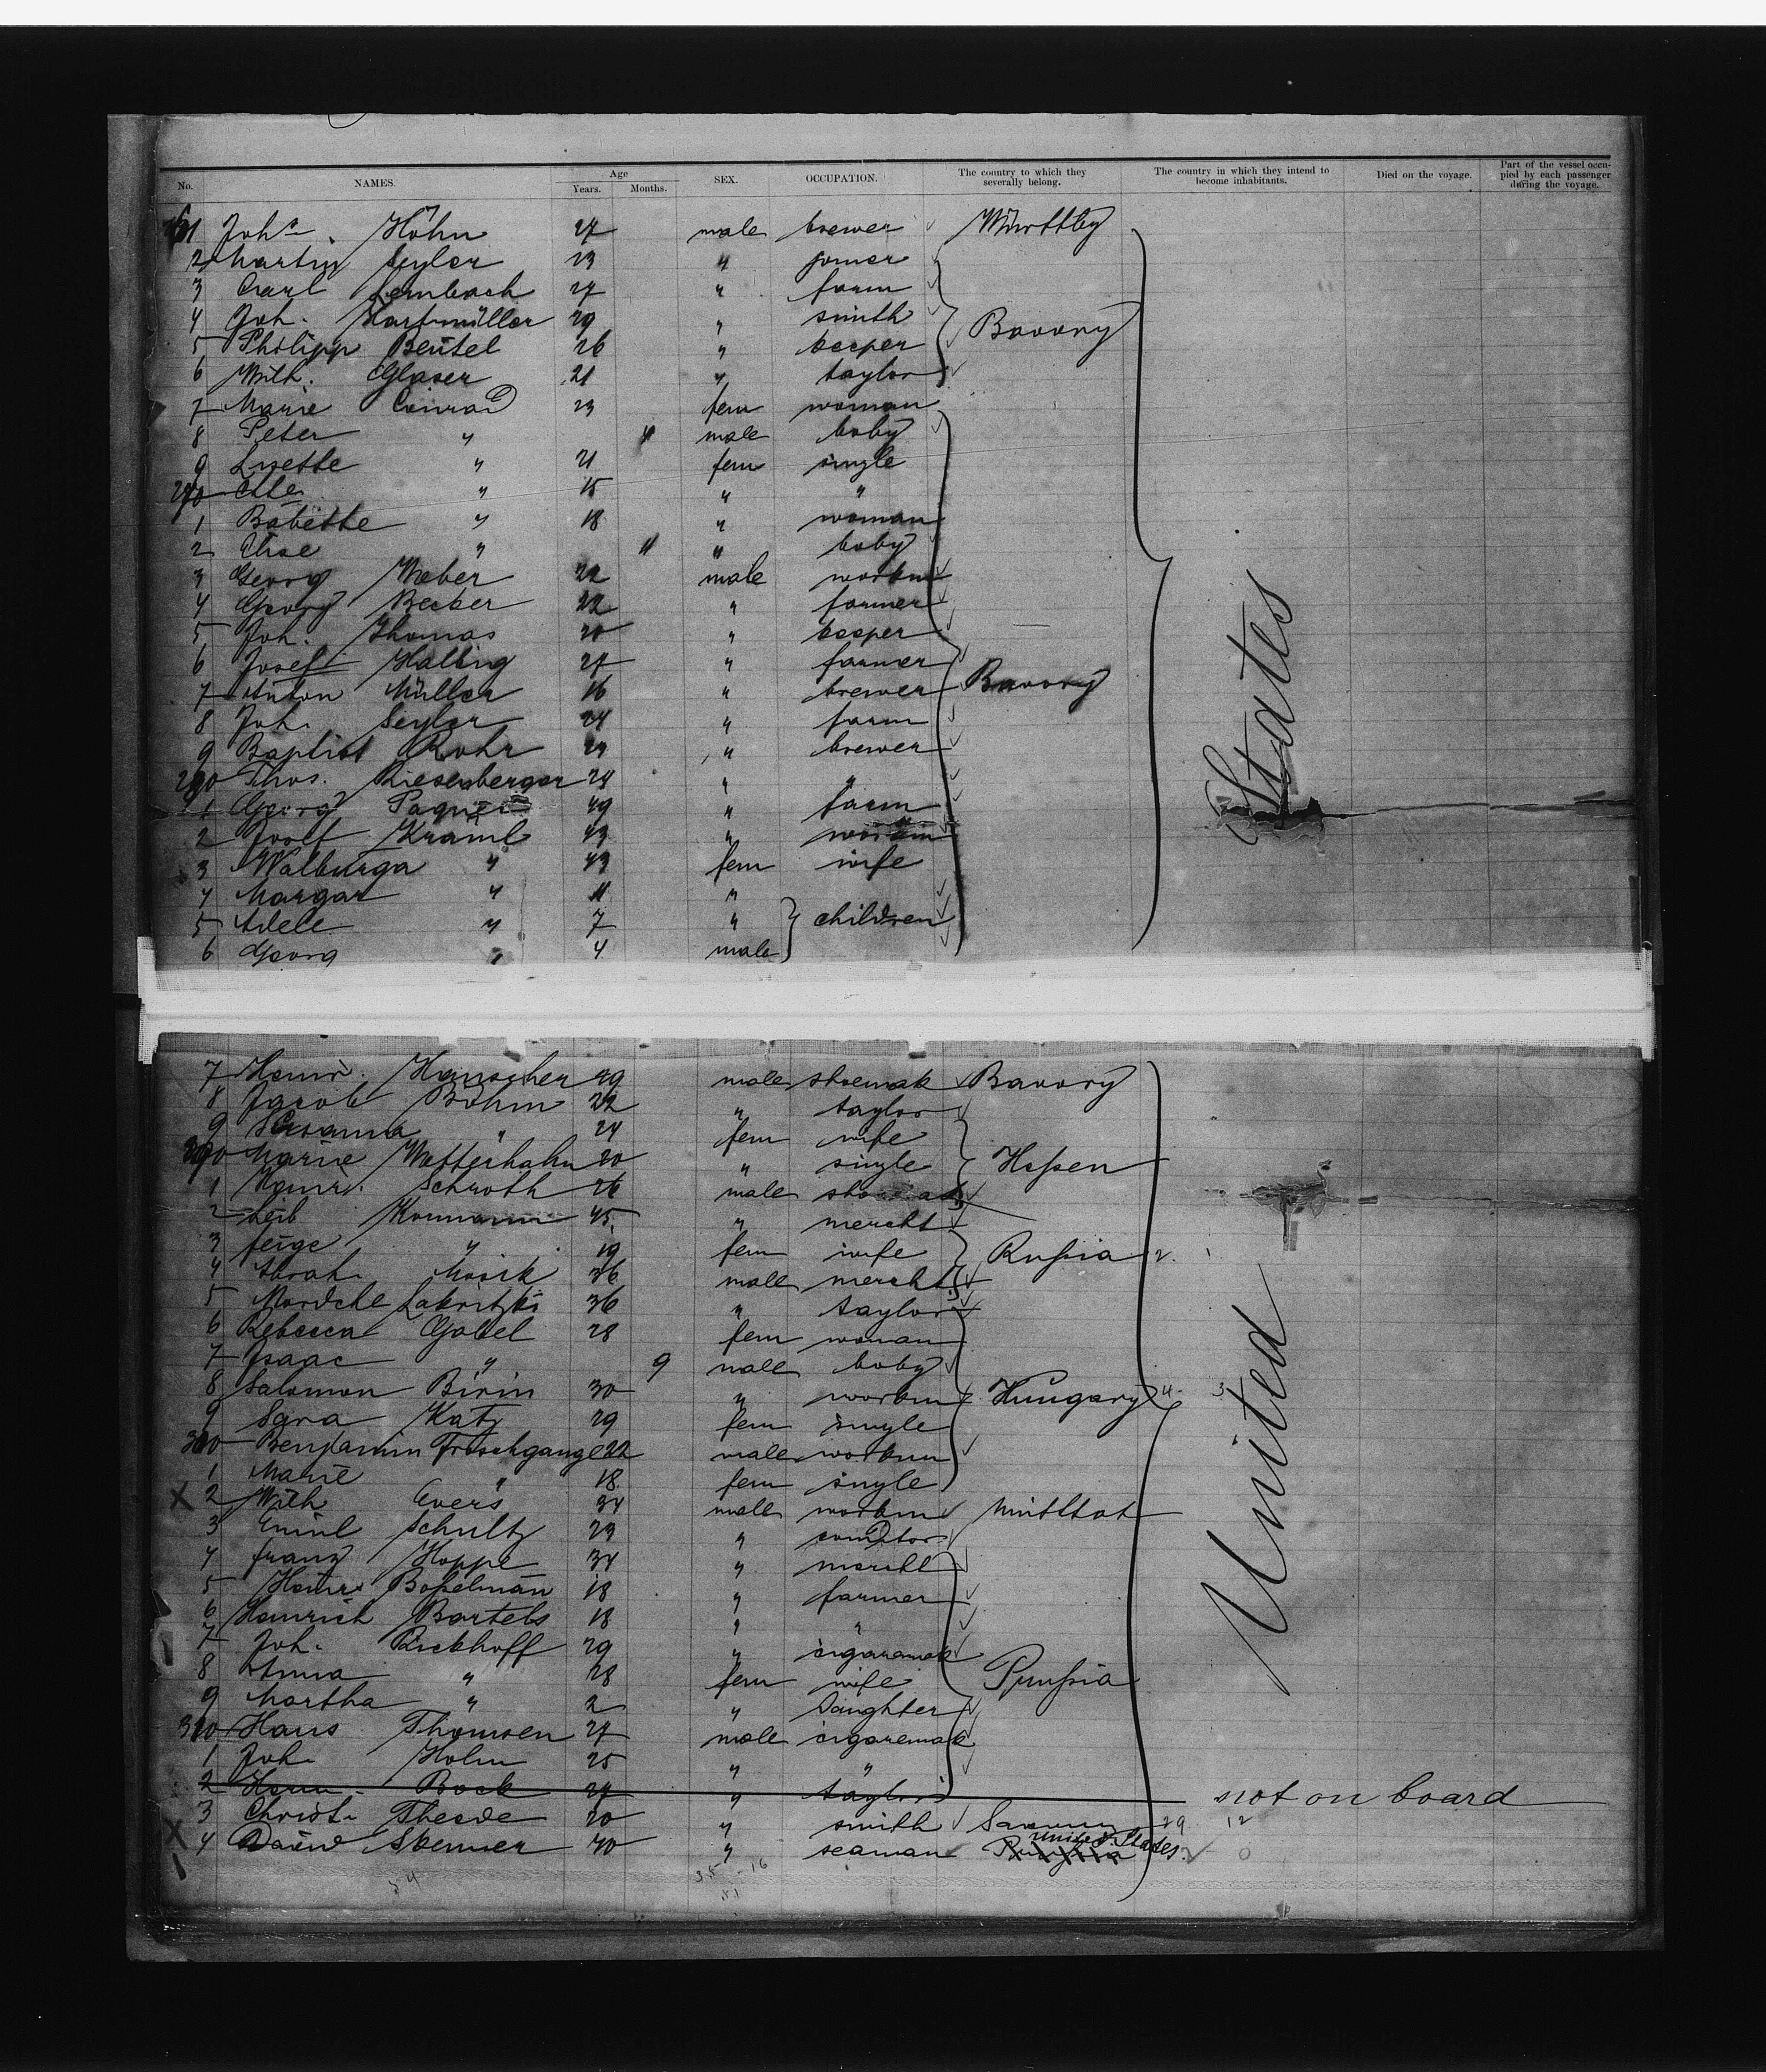 No. NAMES. Age Years. Months. SEX. OCCUPATION. The country to which they severally belong. The country in which they intend to become inhabitants. Died on the voyage. Part of the vessel occupied by each passenger during the voyage.
Joh. Höhn 27 male brewer Württbg
2 Martin Seyler 23 " joiner
3 Carl Lembach 27 " farm
4 Joh. Hartmüller 29 " smith Bavary
5 Philipp Beutel 26 " keeper
6 Wilh. Glaser 21 " taylor
7 Marie Conrad 23 fem woman
8 Peter " male baby
9 Lisette " 21 fem single
270 " 15 " "
1 Babette " 18 " woman
2 Elise " 11 " baby
3 Georg Weber 22 male workm
4 Georg Becker 22 " farmer
5 Joh. Thomas 20 " keeper
6 Josef Halbig 27 " farmer
7 Anton Müller 16 " brewer Bavary
8 Joh. Seyler 24 " farm
9 Baptist Rohr 24 " brewer
280 Thos. Riesenberger 24 " "
1 Georg 49 " farm
2 Josef Kraml 43 " workm
3 Walburga " 43 fem wife
4 Margar " 11 "
5 Adele " 7 " children
6 Georg " 4 male
States
7 Heinr. Hanscher 29 male shoemak Bavary
8 Jacob Böhm 22 " taylor
9 Susanna " 24 fem wife
290 Marie Wetterhahn 20 " single Hessen
1 Heinr. Schroth 26 male shoemak
2 Leib 45 " mercht
3 Feige " 19 fem wife Russia 2
4 Abrah. Mosik 36 male mercht
5 Mordche Lakritzki 36 " taylor
6 Rebecca Gabel 28 fem woman
7 Isaac " 9 male baby
8 Salomon Birin 30 " workm Hungary 4 3
9 Sara Katz 29 fem single
300 Benjamin Froschgange 22 male workm
1 Marie " 18 fem single
X 2 Wilh Evers 34 male workm Unitstat
3 Emil Schultz 23 " conditor
4 Franz Hoppe 34 " mercht
5 Heinr. Bosselman 18 " farmer
6 Heinrich Bartels 18 " "
7 Joh. Rickhoff 29 " cigaremak
8 Anna " 28 fem wife Prussia
9 Martha " 2 " daughter
310 Hans Thomsen 27 male cigaremak
1 Joh. Holm 25 " "
2 Herm. Bock 27 " taylor not on board
3 Christ. Theede 20 " smith 29 12
X 4 David 40 " seaman United States 0
United
54
35 - 16
51